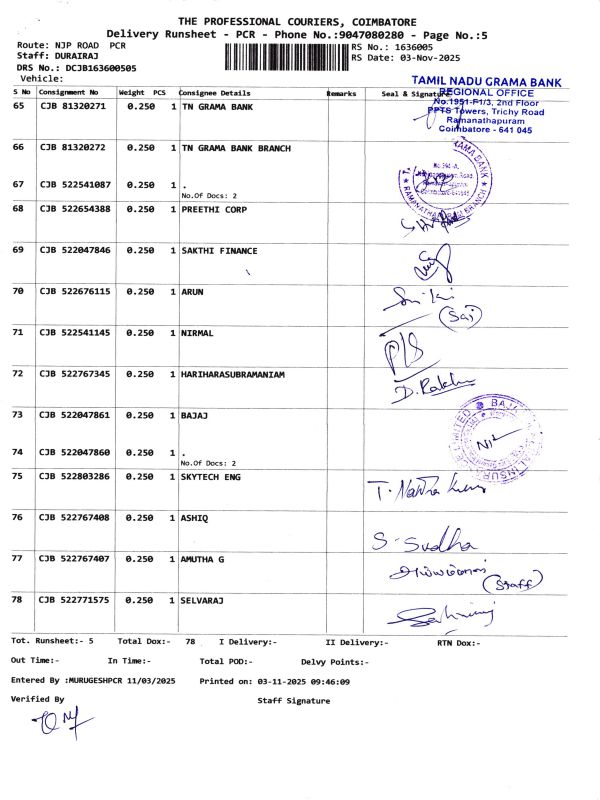 THE PROFESSIONAL COURIERS, COIMBATORE
Delivery Runsheet - PCR - Phone No.:9047080280 - Page No.:5
Route: NJP ROAD PCR
RS No.: 1636005
Staff: DURAIRAJ
RS Date: 03-Nov-2025
DRS No.: DCJB163600505
Vehicle:
TAMIL NADU GRAMA BANK
REGIONAL OFFICE
No.1951-F1/3, 2nd Floor
PPTS Towers, Trichy Road
Ramanathapuram
Coimbatore - 641 045
S No Consignment No Weight PCS Consignee Details Remarks Seal & Signature
65 CJB 81320271 0.250 1 TN GRAMA BANK
66 CJB 81320272 0.250 1 TN GRAMA BANK BRANCH
67 CJB 522541087 0.250 1 .
No.Of Docs: 2
68 CJB 522654388 0.250 1 PREETHI CORP
69 CJB 522047846 0.250 1 SAKTHI FINANCE
70 CJB 522676115 0.250 1 ARUN
(Saj)
71 CJB 522541145 0.250 1 NIRMAL
72 CJB 522767345 0.250 1 HARIHARASUBRAMANIAM
73 CJB 522047861 0.250 1 BAJAJ
74 CJB 522047860 0.250 1 .
No.Of Docs: 2
75 CJB 522803286 0.250 1 SKYTECH ENG
76 CJB 522767408 0.250 1 ASHIQ
S-Sudha
77 CJB 522767407 0.250 1 AMUTHA G
(Staff)
78 CJB 522771575 0.250 1 SELVARAJ
Tot. Runsheet:- 5 Total Dox:- 78 I Delivery:- II Delivery:- RTN Dox:-
Out Time:- In Time:- Total POD:- Delvy Points:-
Entered By :MURUGESHPCR 11/03/2025 Printed on: 03-11-2025 09:46:09
Verified By Staff Signature